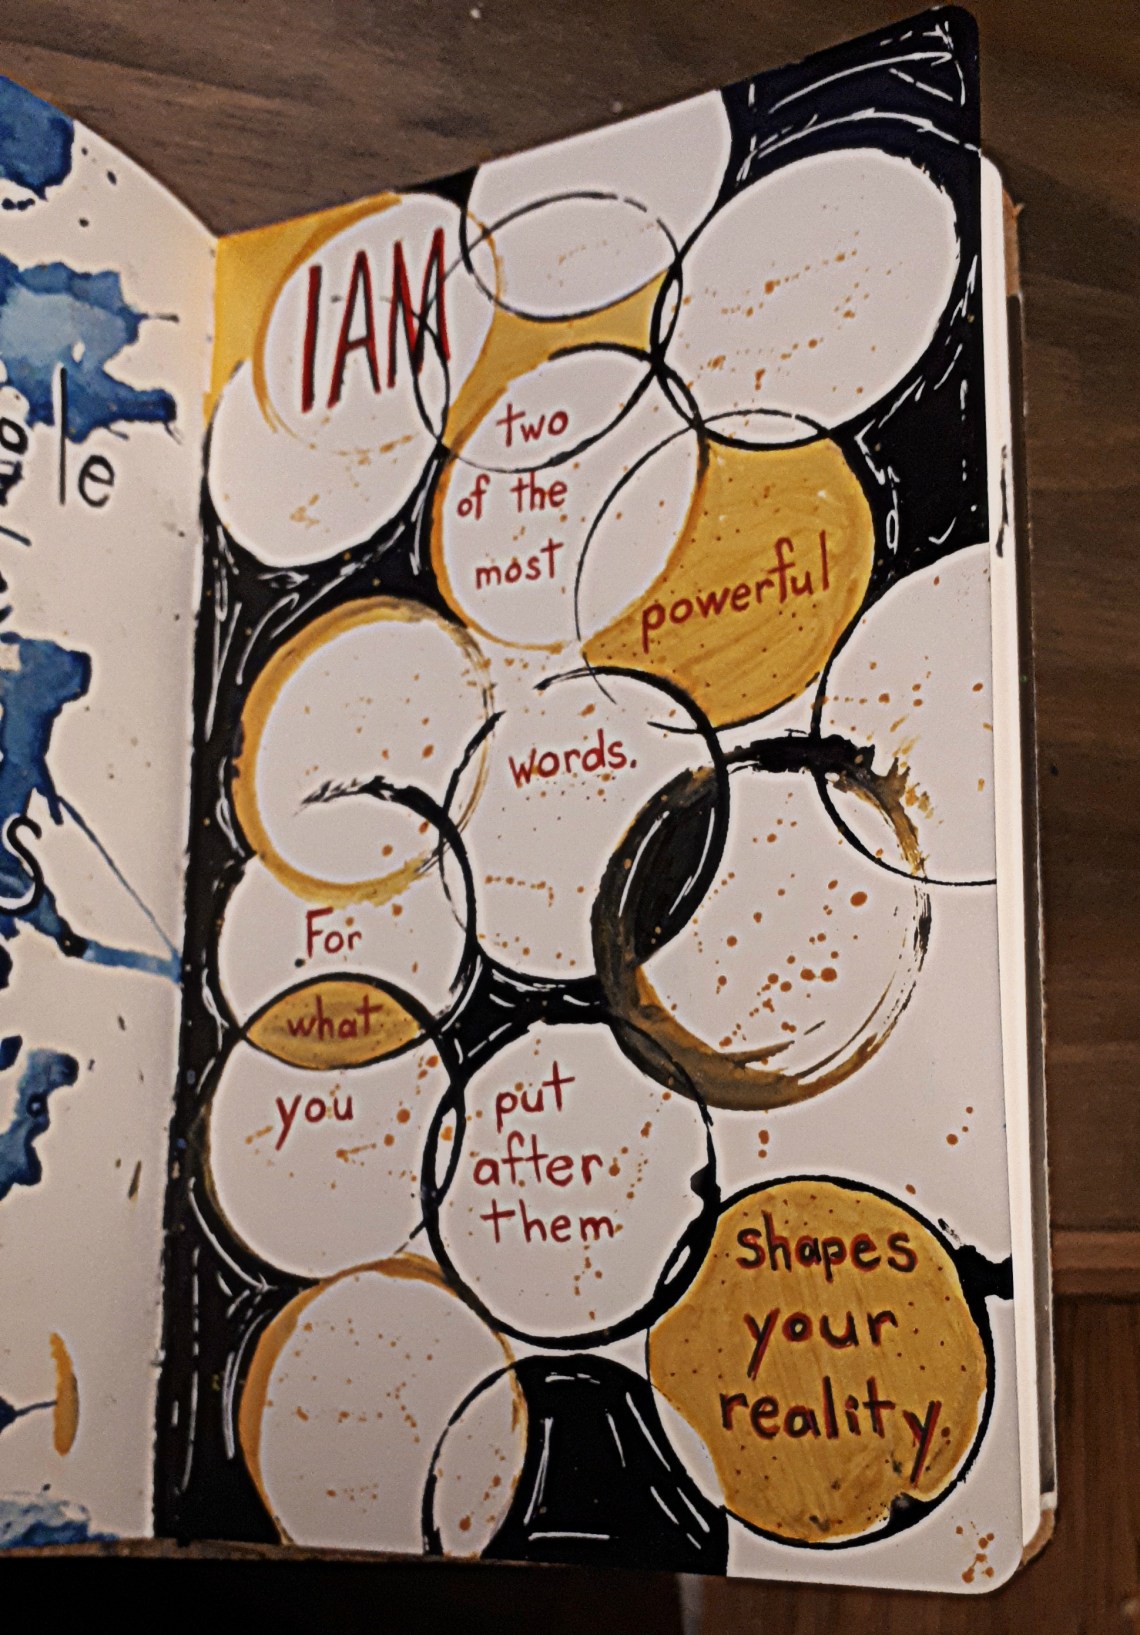 I AM
two
of the
most
powerful
words.
For
what
you
put
after
them
shapes
your
reality.